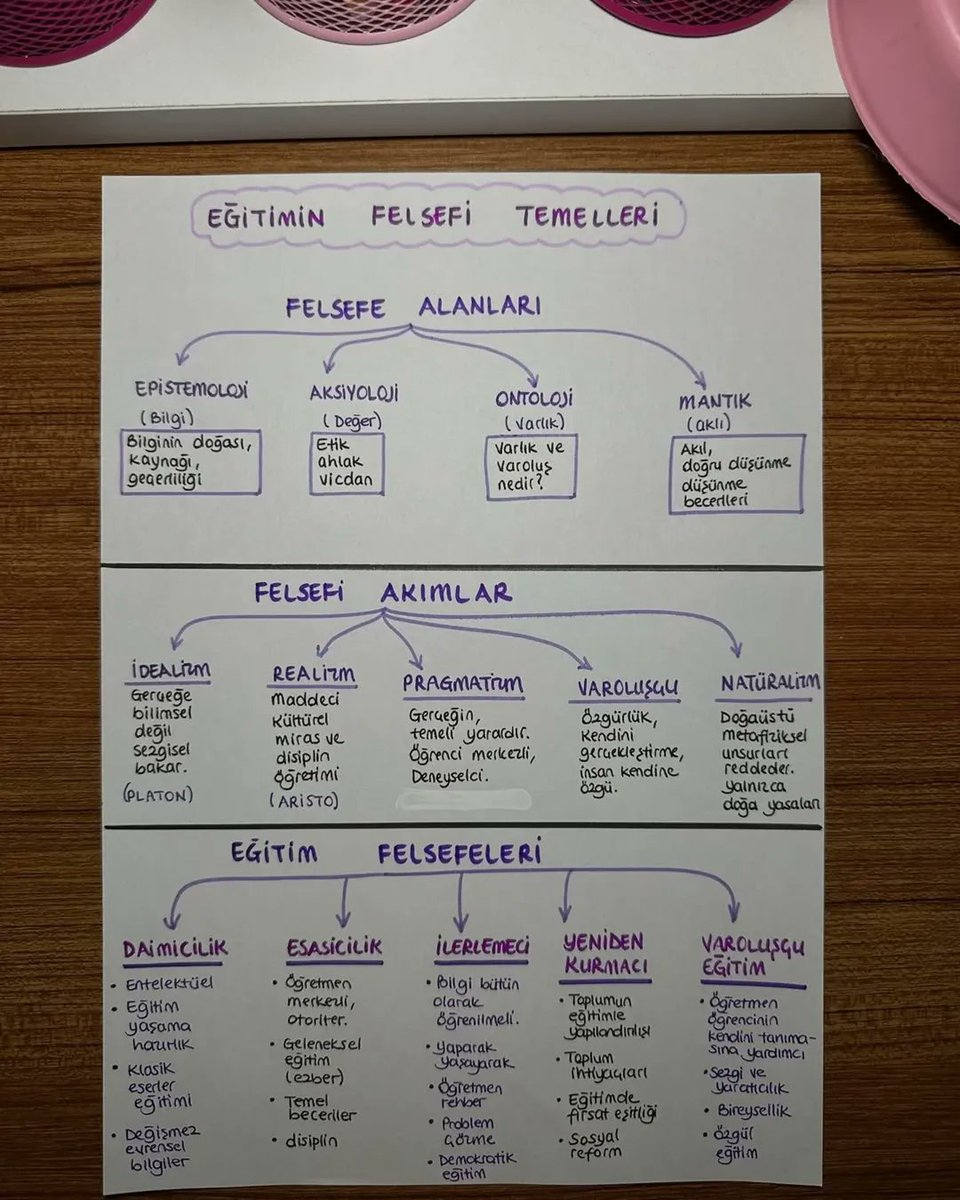 EĞİTİMİN FELSEFİ TEMELLERİ
FELSEFE ALANLARI
EPİSTEMOLOJİ
(Bilgi)
Bilginin doğası,
kaynağı,
geçerliliği
AKSİYOLOJİ
(Değer)
Etik
ahlak
vicdan
ONTOLOJİ
(Varlık)
Varlık ve
varoluş
nedir?
MANTIK
(aklı)
Akıl,
doğru düşünme
düşünme
becerileri
FELSEFİ AKIMLAR
İDEALİZM
Gerçeğe
bilimsel
değil
sezgisel
bakar.
(PLATON)
REALİZM
Maddeci
Kültürel
miras ve
disiplin
öğretimi
(ARİSTO)
PRAGMATİZM
Gerçeğin,
temeli yarardır.
Öğrenci merkezli,
Deneyselci.
VAROLUŞÇU
Özgürlük,
Kendini
gerçekleştirme,
insan kendine
özgü.
NATÜRALİZM
Doğaüstü
metafiziksel
unsurları
reddeder.
Yalnızca
doğa yasaları
EĞİTİM FELSEFELERİ
DAİMİCİLİK
• Entelektüel
• Eğitim
yaşama
hazırlık
• Klasik
eserler
eğitimi
• Değişmez
evrensel
bilgiler
ESASİCİLİK
• Öğretmen
merkezli,
otoriter.
• Geleneksel
eğitim
(ezber)
• Temel
beceriler
• disiplin
İLERLEMECİ
• Bilgi bütün
olarak
öğrenilmeli.
• Yaparak
yaşayarak
• Öğretmen
rehber
• Problem
çözme
• Demokratik
eğitim
YENİDEN
KURMACI
• Toplumun
eğitimle
yapılandırılışı
• Toplum
ihtiyaçları
• Eğitimde
fırsat eşitliği
• Sosyal
reform
VAROLUŞÇU
EĞİTİM
• Öğretmen
öğrencinin
kendini tanıma-
sına yardımcı
• Sezgi ve
yaratıcılık
• Bireysellik
• Özgül
eğitim